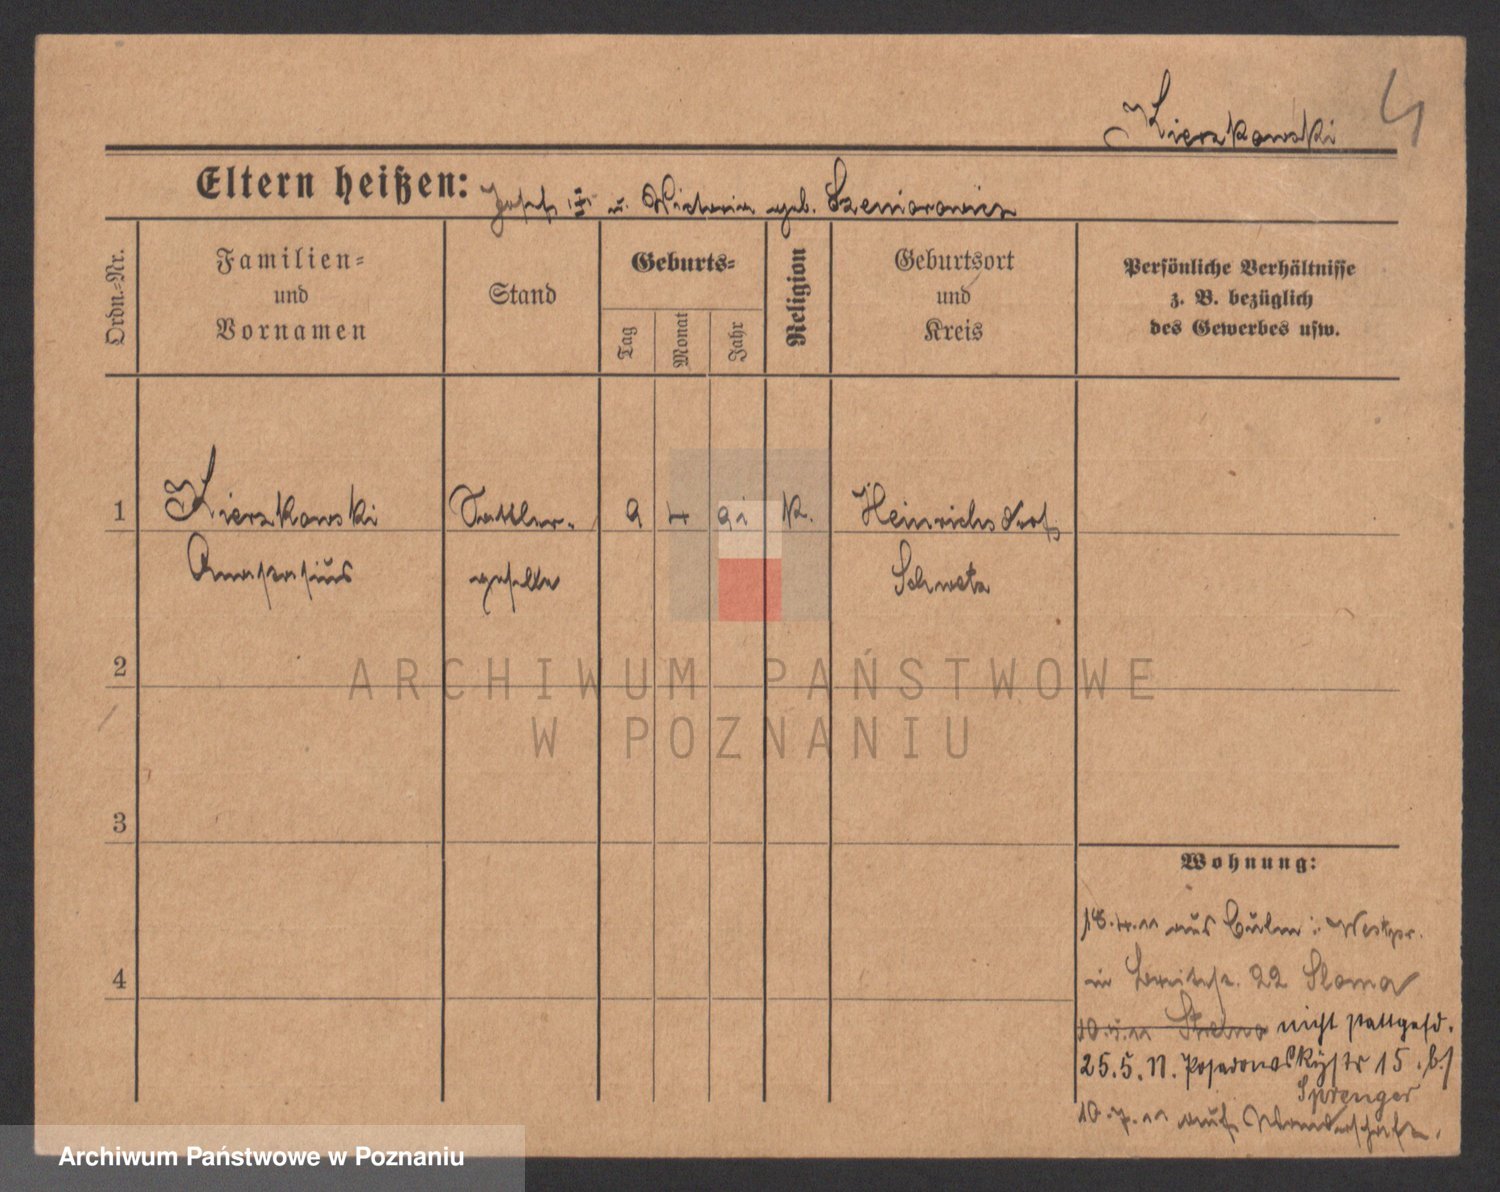 Kierzkowski
4
Eltern heißen: Josef u. Victoria geb. Szeniorowicz
Ordn.-Nr.
Familien-
und
Vornamen
Stand
Geburts-
Tag
Monat
Jahr
Religion
Geburtsort
und
Kreis
Persönliche Verhältnisse
z. B. bezüglich
des Gewerbes usw.
1 Kierzkowski Sattler- 9 4 91 K. Heinrichsdorf
Anastasius geselle Schwetz
2
ARCHIWUM PAŃSTWOWE
W POZNANIU
3
4
Wohnung:
18.4.11 aus Culm i. Westpr.
in Breitestr. 22 Sloma
10.5.11 nicht stattgefd.
25.5.11. Posadowskystr 15. b/
Sprenger
10.7.11 auf Wanderschaft.
Archiwum Państwowe w Poznaniu